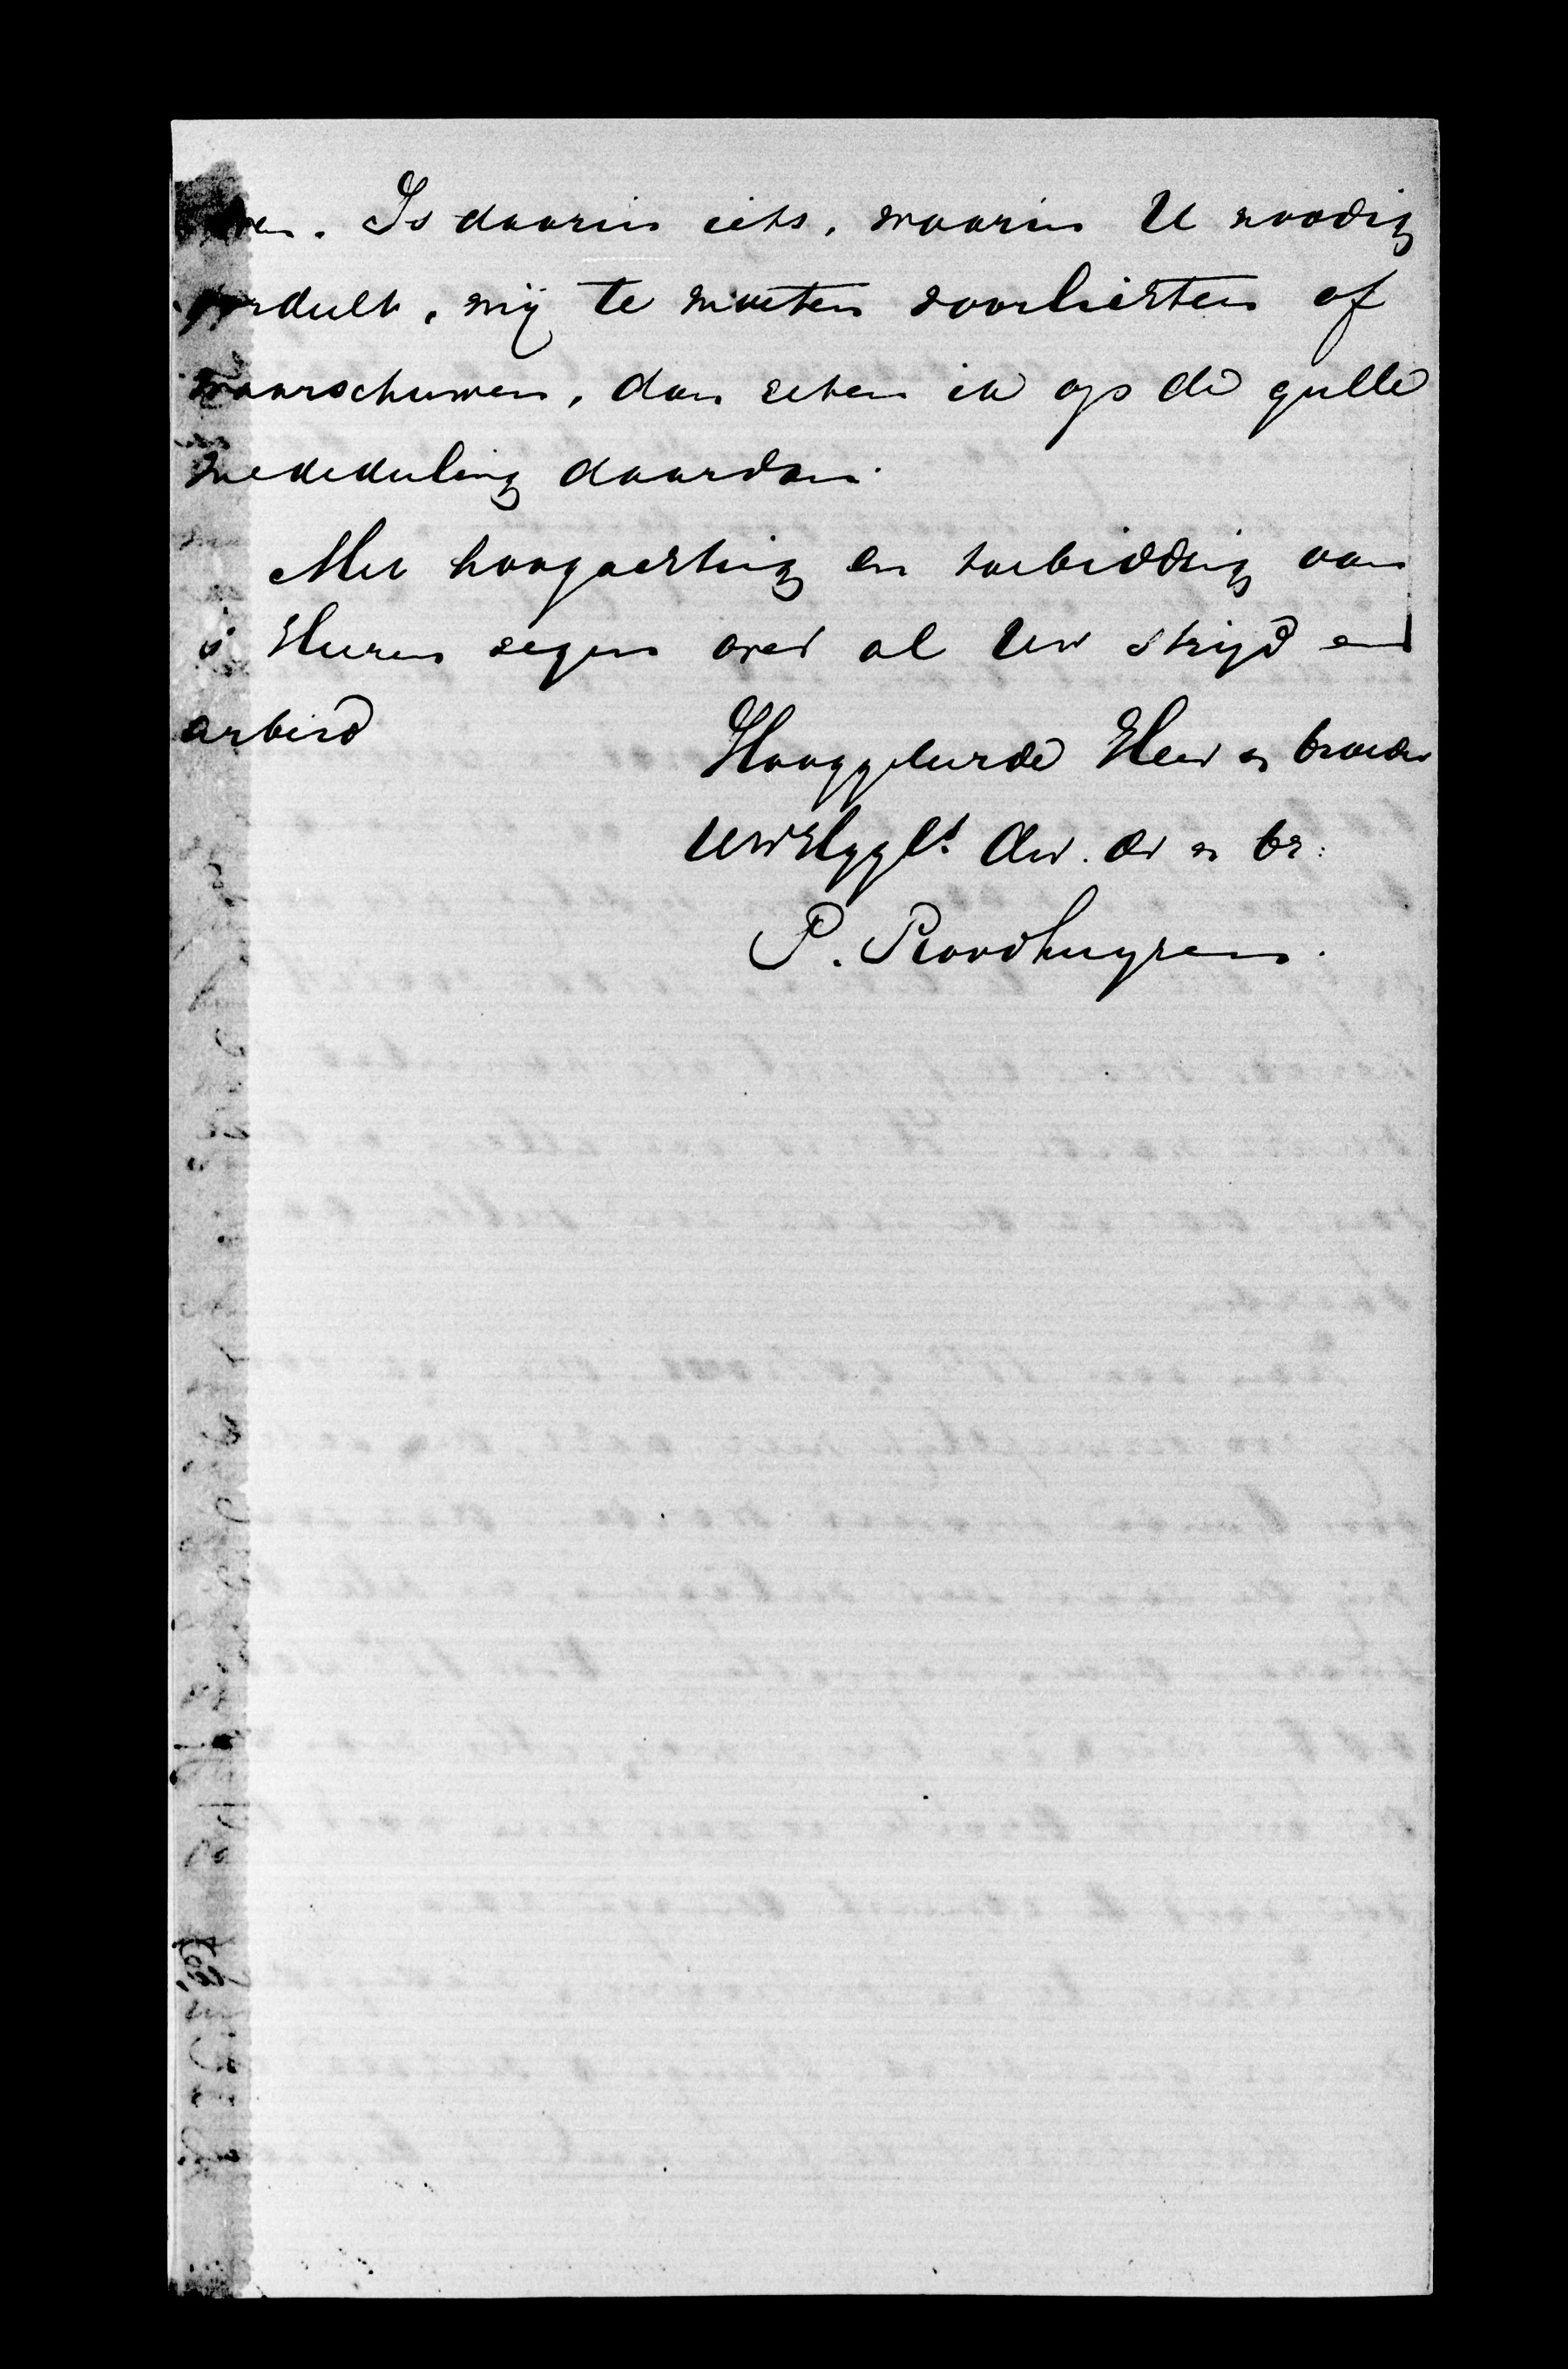 Is daarin iets, waarin U noodig
oordeelt, mij te moeten voorlichten of
waarschuwen, dan reken ik op de gulle
mededeeling daarvan.
Met hoogachting en toebidding van
's Heeren zegen over al Uw strijd en
arbeid
Hooggeleerde Heer en broeder
UwHggel. dw. dr en br:
P. Roodhuyzen.